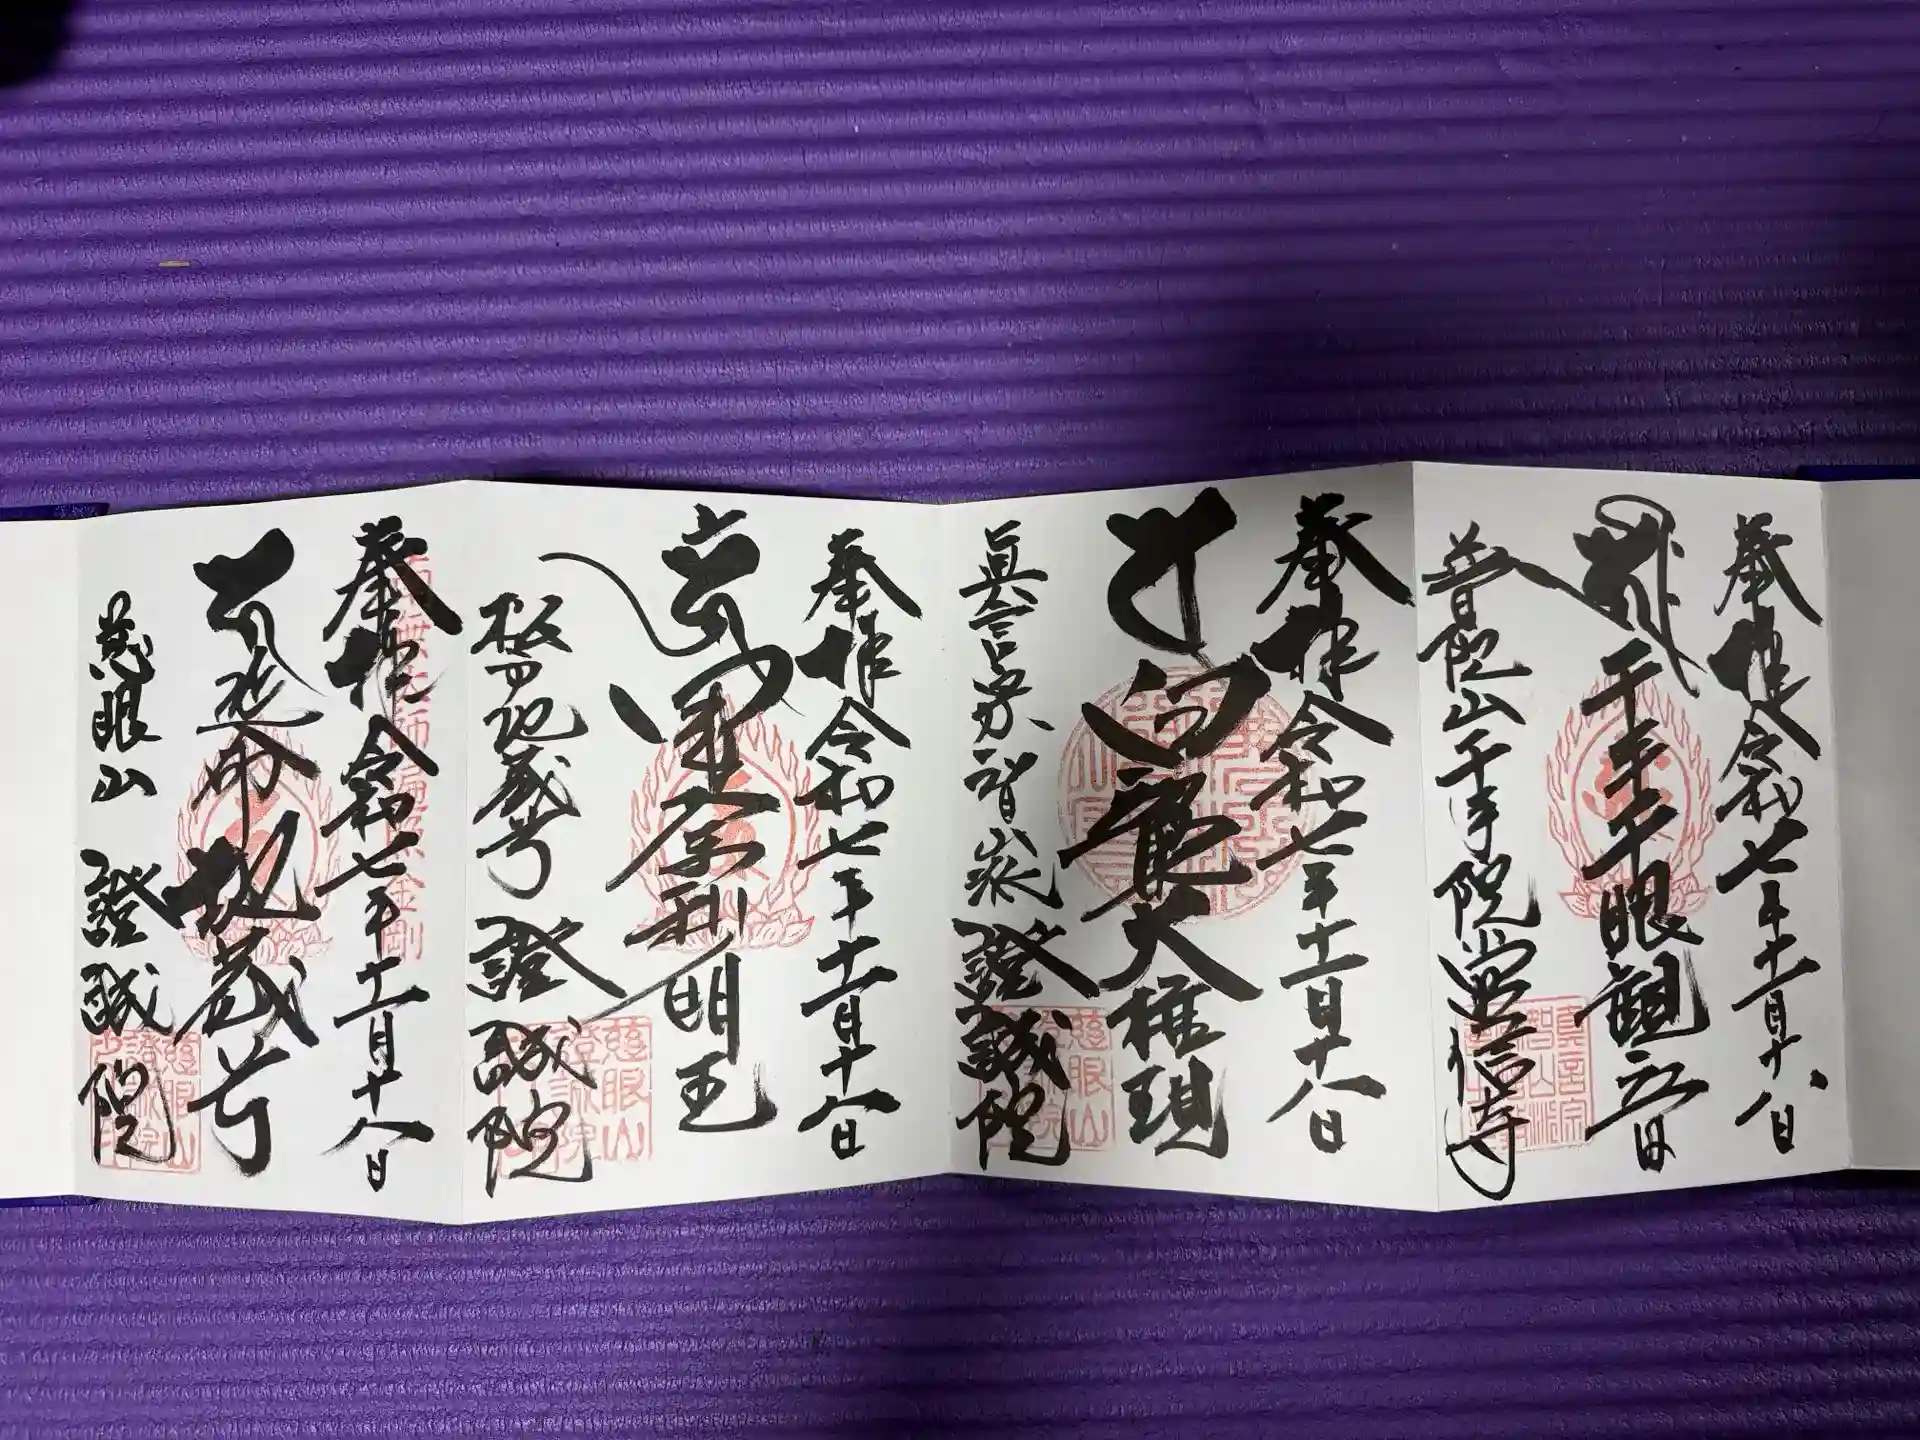 奉拝 令和七年十一月十八日
千手千眼観音
普陀山千手院 信寺
奉拝 令和七年十一月十八日
白龍大権現
眞言宗智山派 證誠院
奉拝 令和七年十一月十八日
軍荼利明王
地蔵号 證誠院
慈眼山
奉拝 令和七年十一月十八日
延命地蔵号
慈眼山 證誠院
慈眼山